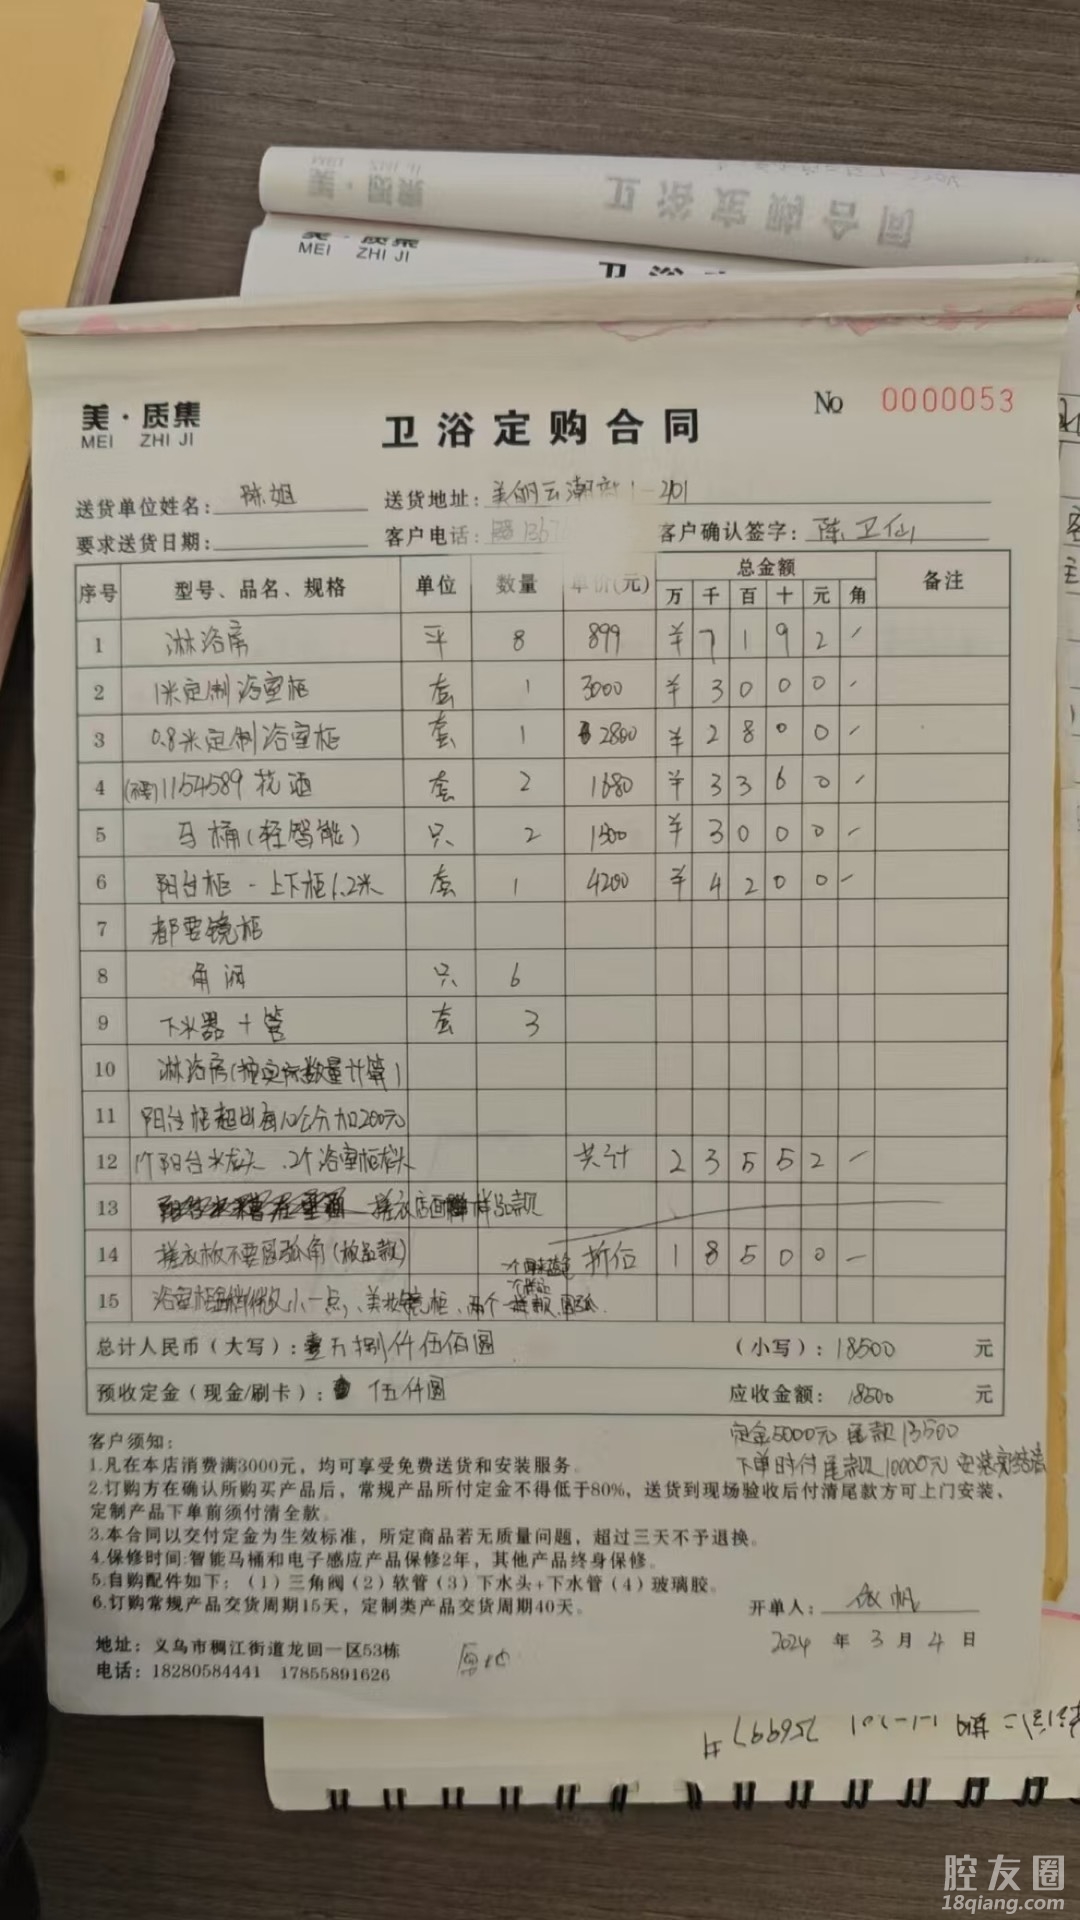 美·质集
MEI ZHI JI
卫浴定购合同
美·质集
MEI ZHI JI
美·质集
MEI ZHI JI
卫浴定购合同
No 0000053
送货单位姓名: 陈姐 送货地址: 美的云潮府 1-201
要求送货日期: 客户电话: 1367 客户确认签字: 陈卫仙
序号 型号、品名、规格 单位 数量 单价(元) 总金额 备注
万 千 百 十 元 角
1 淋浴房 平 8 899 ¥ 7 1 9 2 -
2 1米定制浴室柜 套 1 3000 ¥ 3 0 0 0 -
3 0.8米定制浴室柜 套 1 2800 ¥ 2 8 0 0 -
4 1154589 花洒 套 2 1680 ¥ 3 3 6 0 -
5 马桶(轻智能) 只 2 1500 ¥ 3 0 0 0 -
6 阳台柜-上下柜1.2米 套 1 4200 ¥ 4 2 0 0 -
7 都要镜柜
8 角阀 只 6
9 下水器+管 套 3
10 淋浴房(按实际数量计算)
11 阳台柜超出每10公分加200元
12 1个阳台水龙头、2个浴室柜龙头 共计 2 3 5 5 2 -
13 搓衣店面样品款
14 搓衣板不要圆弧角(板品款) 折后 1 8 5 0 0 -
15 浴室柜 小一点、美妆镜柜、两个
总计人民币(大写): 壹万捌仟伍佰圆 (小写): 18500 元
预收定金(现金/刷卡): 伍仟圆 应收金额: 18500 元
定金5000元 尾款13500
下单时付尾款10000元 安装完结清
客户须知:
1.凡在本店消费满3000元，均可享受免费送货和安装服务。
2.订购方在确认所购买产品后，常规产品所付定金不得低于80%，送货到现场验收后付清尾款方可上门安装、
定制产品下单前须付清全款。
3.本合同以交付定金为生效标准，所定商品若无质量问题，超过三天不予退换。
4.保修时间:智能马桶和电子感应产品保修2年，其他产品终身保修。
5.自购配件如下:(1)三角阀(2)软管(3)下水头+下水管(4)玻璃胶。
6.订购常规产品交货周期15天，定制类产品交货周期40天。
开单人:
2024 年 3 月 4 日
地址: 义乌市稠江街道龙回一区53栋
电话: 18280584441 17855891626
腔友圈
18qiang.com